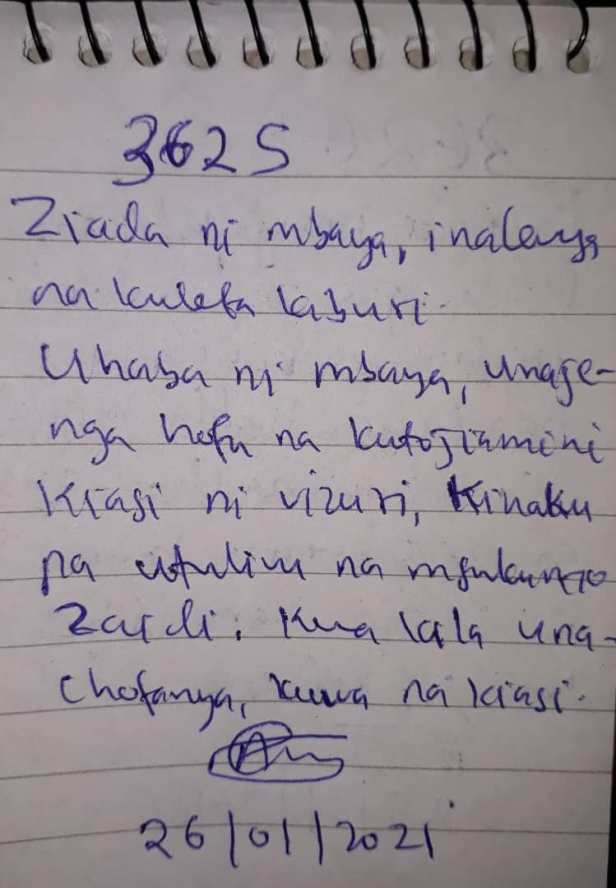 362S
Ziada ni mbaya, inalevya
na kuleta kaburi.
Uhaba ni mbaya, unaje-
nga hofu na kutojiamini
Kiasi ni vizuri, Kinaku
pa utulivu na mfukunzo
Zaidi. Kwa kila una-
chofanya, kuwa na kiasi.
26/01/2021